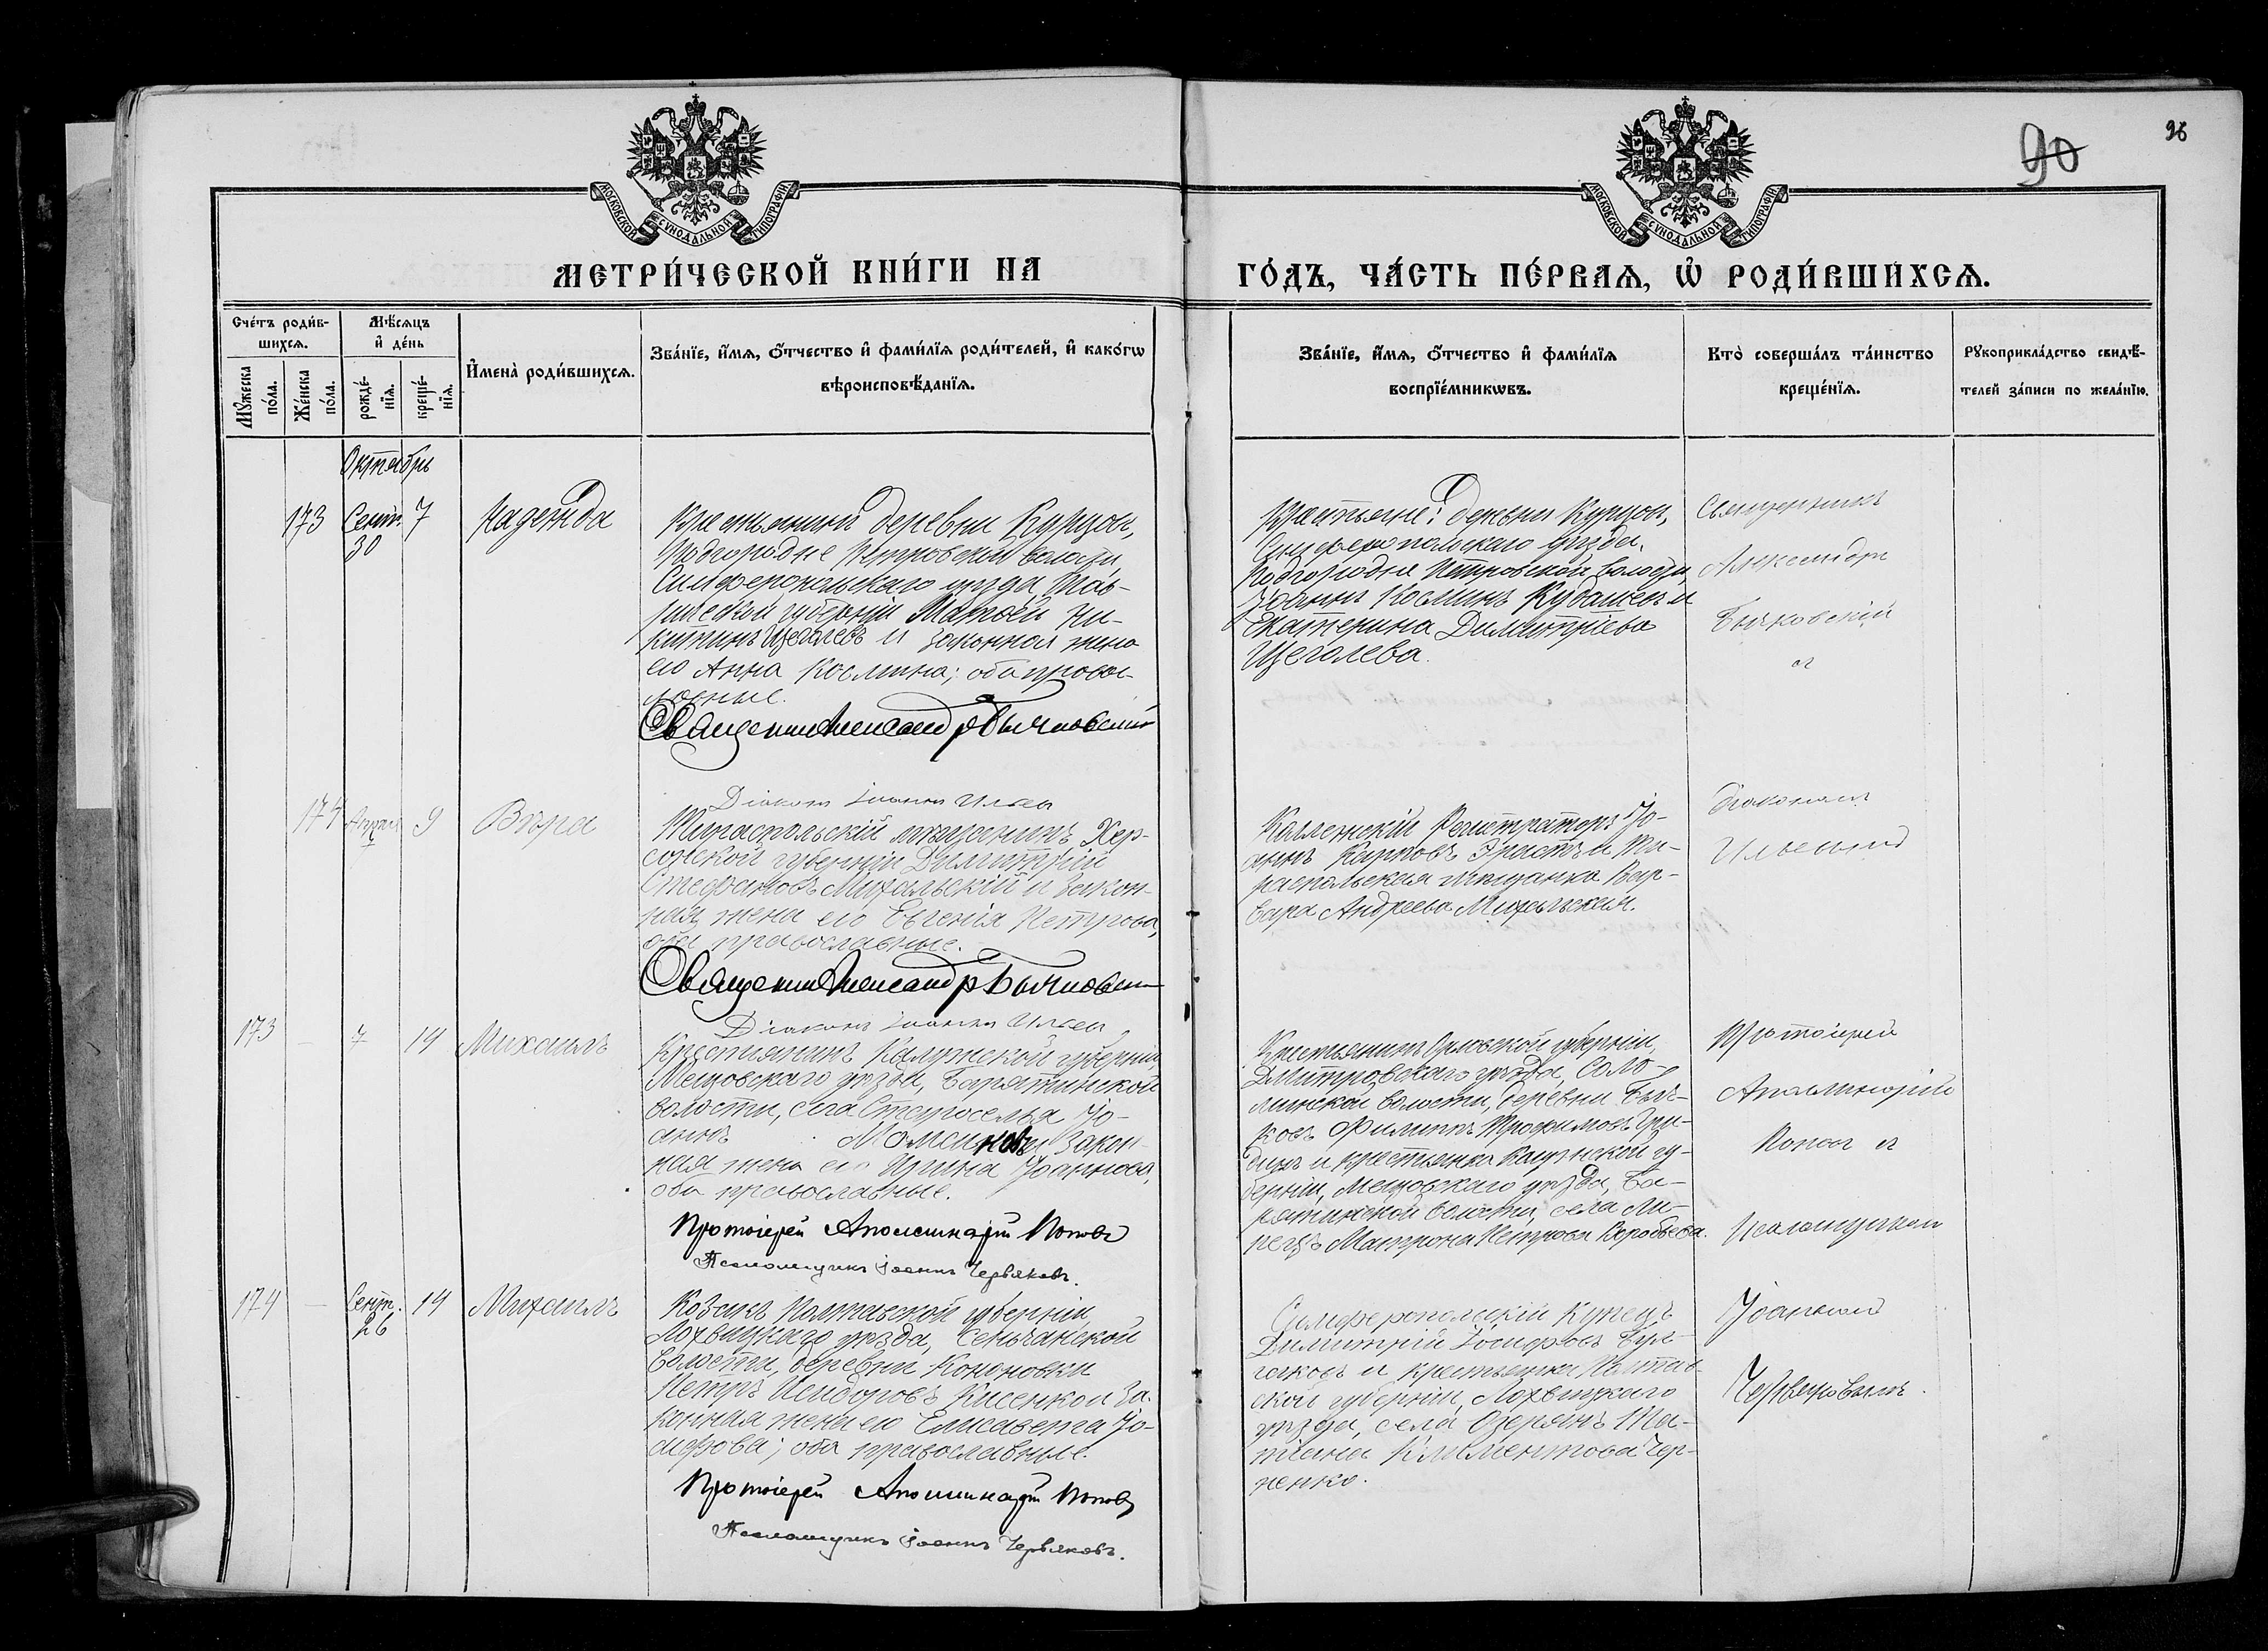 90
96
МОСКОВСКОЙ СУНОДАЛЬНОЙ ТИПОГРАФІИ
МОСКОВСКОЙ СУНОДАЛЬНОЙ ТИПОГРАФІИ
МЕТРИ́ЧЕСКОЙ КНИ́ГИ НА
ГО́ДЪ, ЧА́СТЬ ПЕ́РВАѦ, Ѡ҆ РОДИ́ВШИХСѦ.
Сче́тъ роди́в-
шихсѧ.
Мꙋ́жеска
по́ла.
Же́нска
по́ла.
Мѣ́сѧцъ
и҆ де́нь
рожде́-
нїѧ.
креще́-
нїѧ.
И҆мена̀ роди́вшихсѧ.
Зва́нїе, и҆́мѧ, ѻ҆́тчество и҆ фами́лїѧ роди́телей, и҆ како́гѡ
вѣроисповѣ́данїѧ.
Зва́нїе, и҆́мѧ, ѻ҆́тчество и҆ фами́лїѧ
воспрїе́мникѡвъ.
Кто̀ соверша́лъ та́инство
креще́нїѧ.
Рꙋкоприкла́дство свидѣ́-
телей за́писи по жела́нїю.
Октябрь
173 Сент. 30 7 Надежда
Крестьянинъ деревни Курцы,
Подгородне Петровской волости,
Симферопольскаго уѣзда, Тав-
рической губерніи Матѳей Ни-
китинъ Щеголевъ и законная жена
его Анна Космина; оба правос-
лавные.
Священникъ Александръ Бычковскій
Діаконъ Іоаннъ Ильин
Крестьяне: деревни Курцы,
Симферопольскаго уѣзда,
Подгородне Петровской волости,
Іоаннъ Косминъ Кудашевъ и
Екатерина Димитріева
Щеголева.
Священникъ
Александръ
Бычковскій
съ
діакономъ
Ильинымъ
174 9 Вѣра
Тираспольскій мѣщанинъ, Хер-
сонской губерніи Димитрій
Стефановъ Михальскій и закон-
ная жена его Евгенія Петрова,
оба православные.
Священникъ Александръ Бычковскій
Діаконъ Іоаннъ Ильин
Коллежскій Регистраторъ Іо-
аннъ Эрастъ и Ти-
распольская мѣщанка Вар-
вара Андреева Михальская.
173 – 7 14 Михаилъ
Крестьянинъ Калужской губерніи,
Мещовскаго уѣзда, Барятинской
волости, села Староселья Іо-
аннъ и закон-
ная жена его Ирина Іоаннова,
оба православные.
Протоіерей Аполлинарій Поповъ
Псаломщикъ Іоаннъ Червяковъ.
Крестьянинъ Орловской губерніи,
Дмитровскаго уѣзда, Соло-
минской волости, деревни Быч-
ковъ Филиппъ Трофимовъ
и крестьянка Калужской гу-
берніи, Мещовскаго уѣзда, Ба-
рятинской волости, села
Матрона Петрова Воробьева.
Протоіерей
Аполлинарій
Поповъ съ
Псаломщикомъ
Іоанномъ
Червяковымъ.
174 – Сент. 26 14 Михаилъ
Козакъ Полтавской губерніи,
Лохвицкаго уѣзда, Сенчанской
волости, деревни Кононовки
Петръ Исидоровъ Кисенко и за-
конная жена его Елисавета Іо-
сифова; оба православные.
Протоіерей Аполлинарій Поповъ
Псаломщикъ Іоаннъ Червяковъ.
Симферопольскій Купецъ
Димитрій Іосифовъ Бул-
гаковъ и крестьянка Полтав-
ской губерніи, Лохвицкаго
уѣзда, села Озерянъ Та-
тіана Климентова Чер-
ненко.